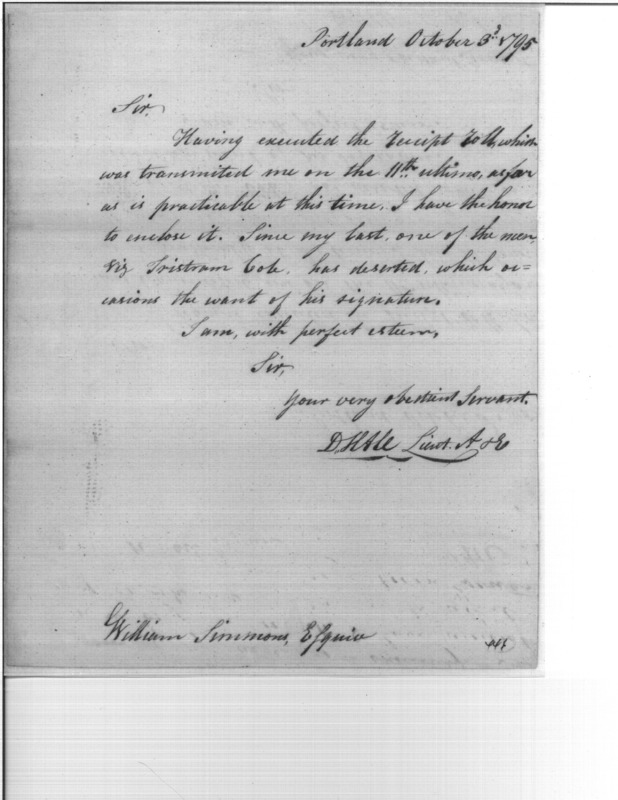 Portland October 3d 1795
Sir,
Having executed the receipt roll, which
was transmitted me on the 11th ultimo, as far
as is practicable at this time, I have the honor
to enclose it. Since my last, one of the men,
Viz Tristram Cole, has deserted, which oc=
casions the want of his signature.
I am, with perfect esteem,
Sir,
your very obedient Servant.
Lieut. A & E
William Simmons, Esquire